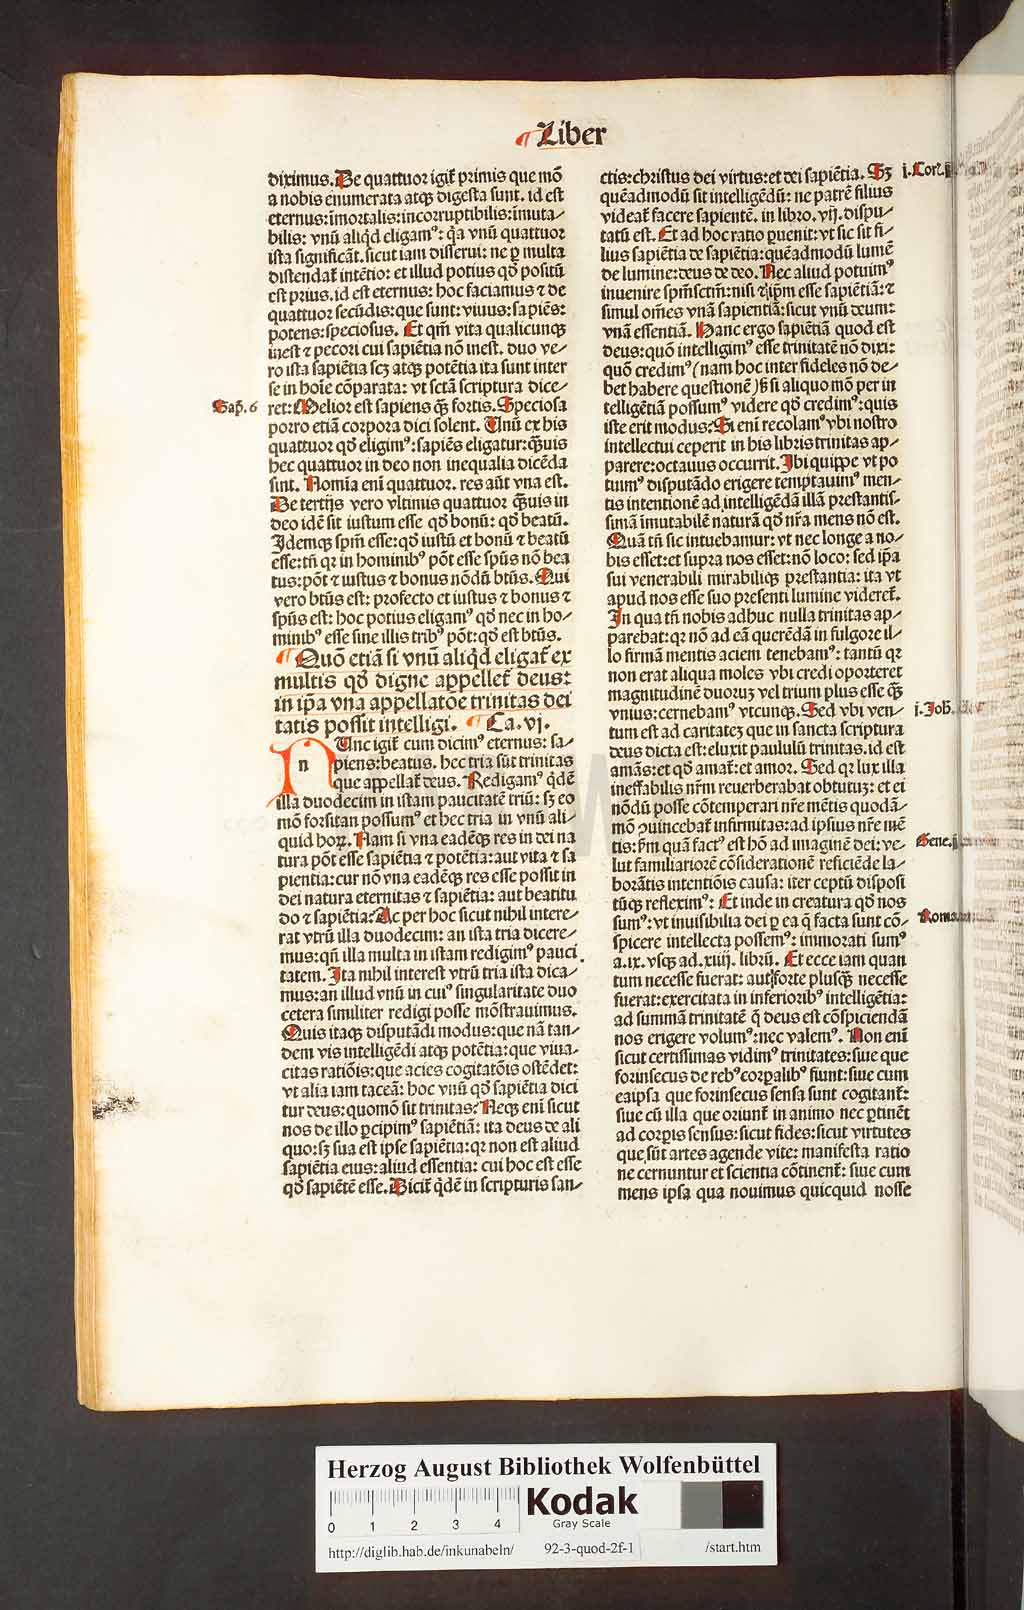 Liber
diximus. De quattuor igit᷑ primis que mō
a nobis enumerata atqꝫ digesta sunt. id est
eternus: īmortalis: incorruptibilis: īmuta⸗
bilis: vnū aliq̇d eligamꝰ: q̇a vnū quattuor
ista significāt. sicut iam disserui: ne ꝑ multa
distendat᷑ intētio: et illud potius qd̄ positū
est prius. id est eternus: hoc faciamus ⁊ de
quattuor secūdis: que sunt: viuus: sapiēs:
potens: speciosus. Et qm̄ vita qualicunqꝫ
inest ⁊ pecori cui sapiētia nō inest. duo ve⸗
ro ista sapiētia scꝫ atqꝫ potētia ita sunt inter
se in hoīe cōparata: vt sctā scriptura dice⸗
Sap̄. 6
ret: Melior est sapiens qꝫ̄ fortis. Speciosa
porro etiā corpora dici solent. Unū ex his
quattuor qd̄ eligimꝰ: sapiēs eligatur: qꝫ̄uis
hec quattuor in deo non inequalia dicēda
sint. Nomīa eni᷑ quattuor. res aūt vna est.
De tertijs vero vltimis quattuor qꝫ̄uis in
deo idē sit iustum esse qd̄ bonū: qd̄ beatū.
Idemqꝫ spm̄ esse: qd̄ iustū et bonū ⁊ beatū
esse: tn̄ qꝛ in hominibꝰ pōt esse spūs nō bea
tus: pōt ⁊ iustus ⁊ bonus nōdū btūs. Qui
vero btūs est: profecto et iustus ⁊ bonus ⁊
spūs est: hoc potius eligamꝰ qd̄ nec in ho⸗
minibꝰ esse sine illis tribꝰ pōt: qd̄ est btūs.
Quō etiā si vnū aliq̇d eligat᷑ ex
multis qd̄ digne appellet᷑ deus:
in ip̄a vna appellatōe trinitas dei
tatis possit intelligi. Ca. vj.
NUnc igit᷑ cum dicimꝰ eternus: sa⸗
piens: beatus. hec tria sūt trinitas
que appellat᷑ deus. Redigamꝰ q̇dē
illa duodecim in istam paucitatē triū: sꝫ eo
mō forsitan possumꝰ et hec tria in vnū ali⸗
quid horꝝ. Nam si vna eadēqꝫ res in dei na
tura pōt esse sapiētia ⁊ potētia: aut vita ⁊ sa
pientia: cur nō vna eadēqꝫ res esse possit in
dei natura eternitas ⁊ sapiētia: aut beatitu
do ⁊ sapiētia? Ac per hoc sicut nihil intere⸗
rat vtrū illa duodecim: an ista tria dicere⸗
mus: qn̄ illa multa in istam redigimꝰ pauci
tatem. Ita nihil interest vtrū tria ista dica⸗
mus: an illud vnū in cuiꝰ singularitate duo
cetera similiter redigi posse mōstrauimus.
Quis itaqꝫ disputādi modus: que nā tan⸗
dem vis intelligēdi atqꝫ potētia: que viua⸗
citas ratiōis: que acies cogitatōis ostēdet:
vt alia iam taceā: hoc vnū qd̄ sapiētia dici
tur deus: quomō sit trinitas? Neqꝫ eni᷑ sicut
nos de illo ꝑcipimꝰ sapiētiā: ita deus de ali
quo: sꝫ sua est ipse sapiētia: qꝛ non est aliud
sapiētia eius: aliud essentia: cui hoc est esse
qd̄ sapiētē esse. Dicit᷑ q̇dē in scripturis san⸗
ctis: christus dei virtus: et dei sapiētia. Sꝫ
j. Cor.
quēadmodū sit intelligēdū: ne patrē filius
videat᷑ facere sapientē. in libro. vij. dispu⸗
tatū est. Et ad hoc ratio ꝑuenit: vt sic sit fi⸗
lius sapiētia de sapiētia: quēadmodū lumē
de lumine: deus de deo. Nec aliud potuimꝰ
inuenire spm̄sctm̄: nisi ⁊ ip̄m esse sapiētiā: ⁊
simul om̄es vnā sapientiā: sicut vnū deum:
vnā essentiā. Hanc ergo sapiētiā quod est
deus: quō intelligimꝰ esse trinitatē nō dixi:
quō credimꝰ (nam hoc inter fideles nō de⸗
bet habere questionē) sꝫ si aliquo mō per in
telligētiā possumꝰ videre qd̄ credimꝰ: quis
iste erit modus? Si eni᷑ recolamꝰ vbi nostro
intellectui ceperit in his libris trinitas ap⸗
parere: octauus occurrit. Ibi quippe vt po
tuimꝰ disputādo erigere temptauimꝰ men⸗
tis intentionē ad intelligēdā illā prestantis⸗
simā īmutabilē naturā qd̄ nr̄a mens nō est.
Quā tn̄ sic intuebamur: vt nec longe a no⸗
bis esset: et supra nos esset: nō loco: sed ip̄a
sui venerabili mirabiliqꝫ prestantia: ita vt
apud nos esse suo presenti lumine videret᷑.
In qua tn̄ nobis adhuc nulla trinitas ap⸗
parebat: qꝛ nō ad eā querēdā in fulgore il⸗
lo firmā mentis aciem tenebamꝰ: tantū qꝛ
non erat aliqua moles vbi credi oporteret
magnitudinē duoruꝫ vel trium plus esse qꝫ̄
vnius: cernebamꝰ vtcunqꝫ. Sed vbi ven⸗
j. Joh̄.
tum est ad caritateꝫ que in sancta scriptura
deus dicta est: eluxit paululū trinitas. id est
amās: et qd̄ amat᷑: et amor. Sed qꝛ lux illa
ineffabilis nr̄m reuerberabat obtutuꝫ: et ei
nōdū posse cōtemperari nr̄e mētis quodā⸗
mō ꝯuincebat᷑ infirmitas: ad ipsius nr̄e mē
tis: ꝓm quā factꝰ est hō ad imaginē dei: ve⸗
Gene. j
lut familiariorē cōsiderationē reficiēde la⸗
borātis intentiōis causa: iter ceptū disposi
tūqꝫ refleximꝰ: Et inde in creatura qd̄ nos
Roma.
sumꝰ: vt inuisibilia dei ꝑ ea q̄ facta sunt cō⸗
spicere intellecta possemꝰ: immorati sumꝰ
a. ix. vsqꝫ ad. xiiij. librū. Et ecce iam quan
tum necesse fuerat: aut forte plusqꝫ̄ necesse
fuerat: exercitata in inferioribꝰ intelligētia:
ad summā trinitatē q̄ deus est cōspiciendā
nos erigere volumꝰ: nec valemꝰ. Non eni᷑
sicut certissimas vidimꝰ trinitates: siue que
forinsecus de rebꝰ corꝑalibꝰ fiunt: siue cum
eaipsa que forinsecus sensa sunt cogitant᷑:
siue cū illa que oriunt᷑ in animo nec ꝑtinēt
ad corꝑis sensus: sicut fides: sicut virtutes
que sūt artes agende vite: manifesta ratio
ne cernuntur et scientia cōtinent᷑: siue cum
mens ipsa qua nouimus quicquid nosse
Herzog August Bibliothek Wolfenbüttel
0 1 2 3 4
Kodak
Gray Scale
http://diglib.hab.de/inkunabeln/ 92-3-quod-2f-1 /start.htm